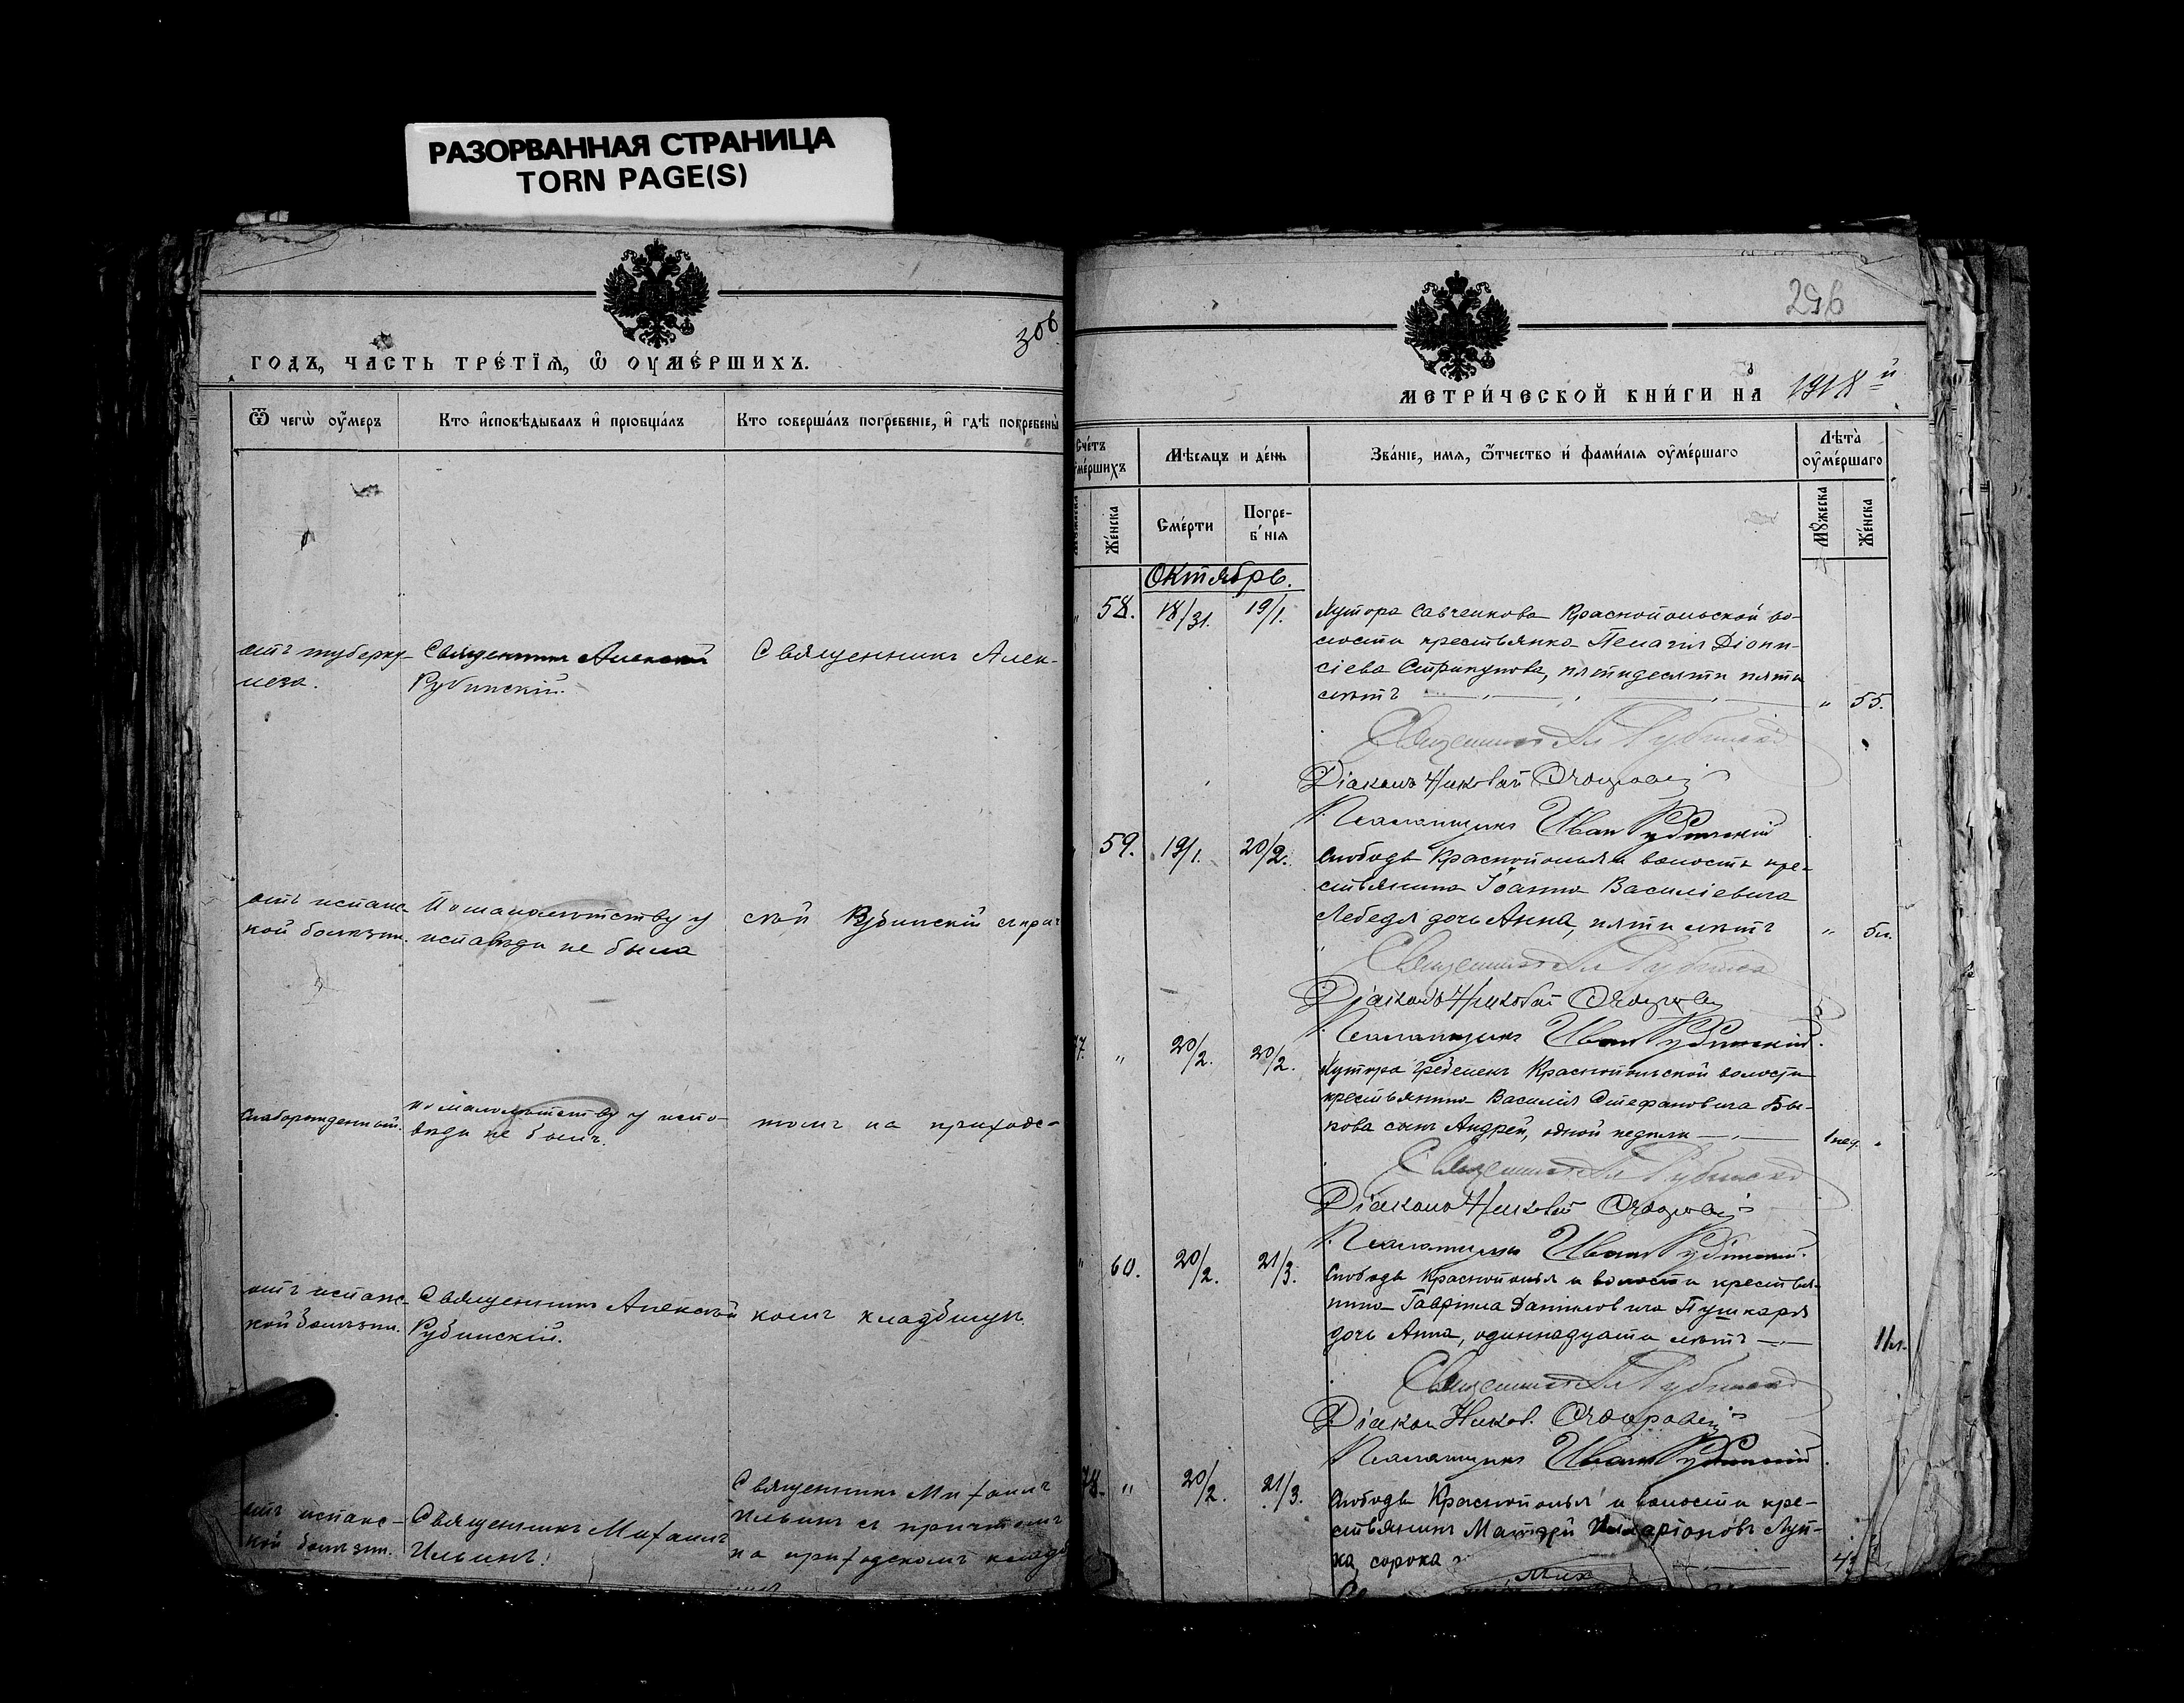 РАЗОРВАННАЯ СТРАНИЦА
TORN PAGE(S)
306
ГОДЪ, ЧАСТЬ ТРЕ́ТЇѦ, Ѽ ОУМЕ́РШИХЪ.
Ѿ чегѡ̀ оу҆́меръ
Кто и҆сповѣ́дывалъ и҆ прїобща́лъ
Кто соверша́лъ погребе́нїе, и҆ гдѣ̀ погребены̀
отъ туберку-
леза.
Священникъ Алексѣй
Рубинскій.
Священникъ Алек-
отъ испанс-
кой болѣзни.
По малолѣтству у
исповѣди не была
сѣй Рубинскій съ прич-
Слаборожденный.
по малолѣтству у испо-
вѣди не былъ.
томъ на приходс-
отъ испанс-
кой болѣзни.
Священникъ Алексѣй
Рубинскій.
комъ кладбищѣ.
отъ испанс-
кой болѣзни.
Священникъ Михаилъ
Ильинъ.
Священникъ Михаилъ
Ильинъ съ причтомъ
на приходскомъ кладб
296
МЕТРИ́ЧЕСКОЙ КНИ́ГИ НА 1918й
Сче́тъ
оуме́ршихъ
Мѣ́сѧцъ и де́нь
Зва́нїе, имѧ, ѿтчество и҆ фами́лїѧ оуме́ршаго
Лѣта̀
оуме́ршаго
Же́нска
Сме́рти
Погре-
б нїѧ
Мꙋжеска
Же́нска
Октябрь.
" 58. 18/31. 19/1. Хутора Савченкова Краснопольской во-
лости крестьянка Пелагія Діони-
сіева Стрикунова, пятидесяти пяти
лѣтъ " 55.
Священникъ Ал Рубинскій
Діаконъ Николай
Псаломщикъ Иван Рубинскій
59. 19/1. 20/2. Слободы Краснополья и волости кре-
стьянина Іоанна Василіевича
Лебедя дочь Анна, пяти лѣтъ " 5л.
Священникъ Ал Рубинскій
Діаконъ Николай
Псаломщикъ Иван Рубинскій.
77. " 20/2. 20/2. Хутора Гребеникъ Краснопольской волости
крестьянина Василія Стефановича Бы-
кова сынъ Андрей, одной недѣли 1 нед.
Священникъ Ал Рубинскій
Діаконъ Николай
Псаломщикъ Иван Рубинскій.
" 60. 20/2. 21/3. Слободы Краснополья и волости крестья-
нина Гавріила Даниловича Пушкаря
дочь Анна, одиннадцати лѣтъ 11л.
Священникъ Ал Рубинскій
Діакон Никол.
Псаломщикъ Иван Рубинскій.
78. " 20/2. 21/3. Слободы Краснополья и волости кре-
стьянинъ Матѳей Иларіоновъ Луп-
ка сорока
Мих